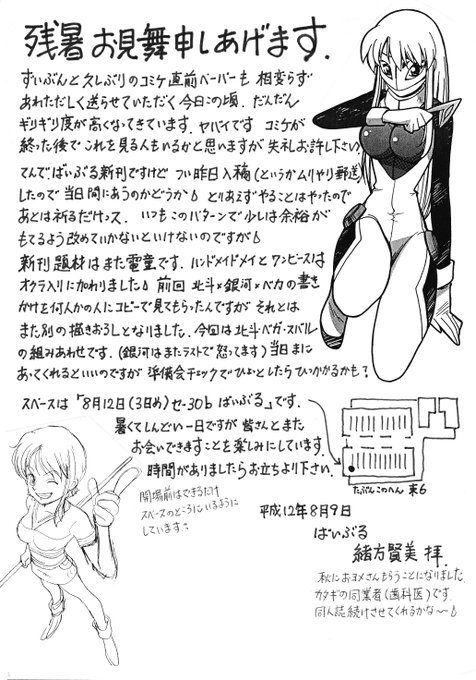 残暑お見舞申しあげます.
ずいぶんと久しぶりのコミケ直前ペーパーも 相変らず
あわただしく送らせていただく今日この頃. だんだん
ギリギリ度が高くなってきています. ヤバイです コミケが
終った後でこれを見る人もいるかと思いますが 失礼お許し下さい
てんでぱいぶる新刊ですけど つい昨日入稿(というかムリヤリ郵送)
したので 当日間にあうのかどうか♪ とりあえずやることはやったので
あとは祈るだけっス. いつもこのパターンで少しは余裕が
もてるよう改めていかないといけないのですが♪
新刊題材はまた電童です. ハンドメイドメイとワンピースは
オクラ入りにかわりました♪ 前回 北斗×銀河×ベガの書き
かけを何人かの人にコピーで見てもらったんですが それとは
また別の描きおろしとなりました. 今回は北斗・ベガ・スバル
の組みあわせです. (銀河はまたラストで怒ってます) 当日まに
あってくれるといいのですが 準備会チェックでひょっとしたらひっかかるかも?
スペースは「8月12日(3日め)セ-30b ぱいぶる」です.
暑くてしんどい一日ですが 皆さんとまた
お会いできますことを楽しみにしています.
時間がありましたらお立ちより下さい.
たぶんこのへん 東6
開場前はできるだけ
スペースのところにいるように
しています
平成12年8月9日
ぱいぶる
緒方賢美 拝.
秋におヨメさんもらうことになりました.
カタギの同業者(歯科医)です.
同人誌続けさせてくれるかな〜♪